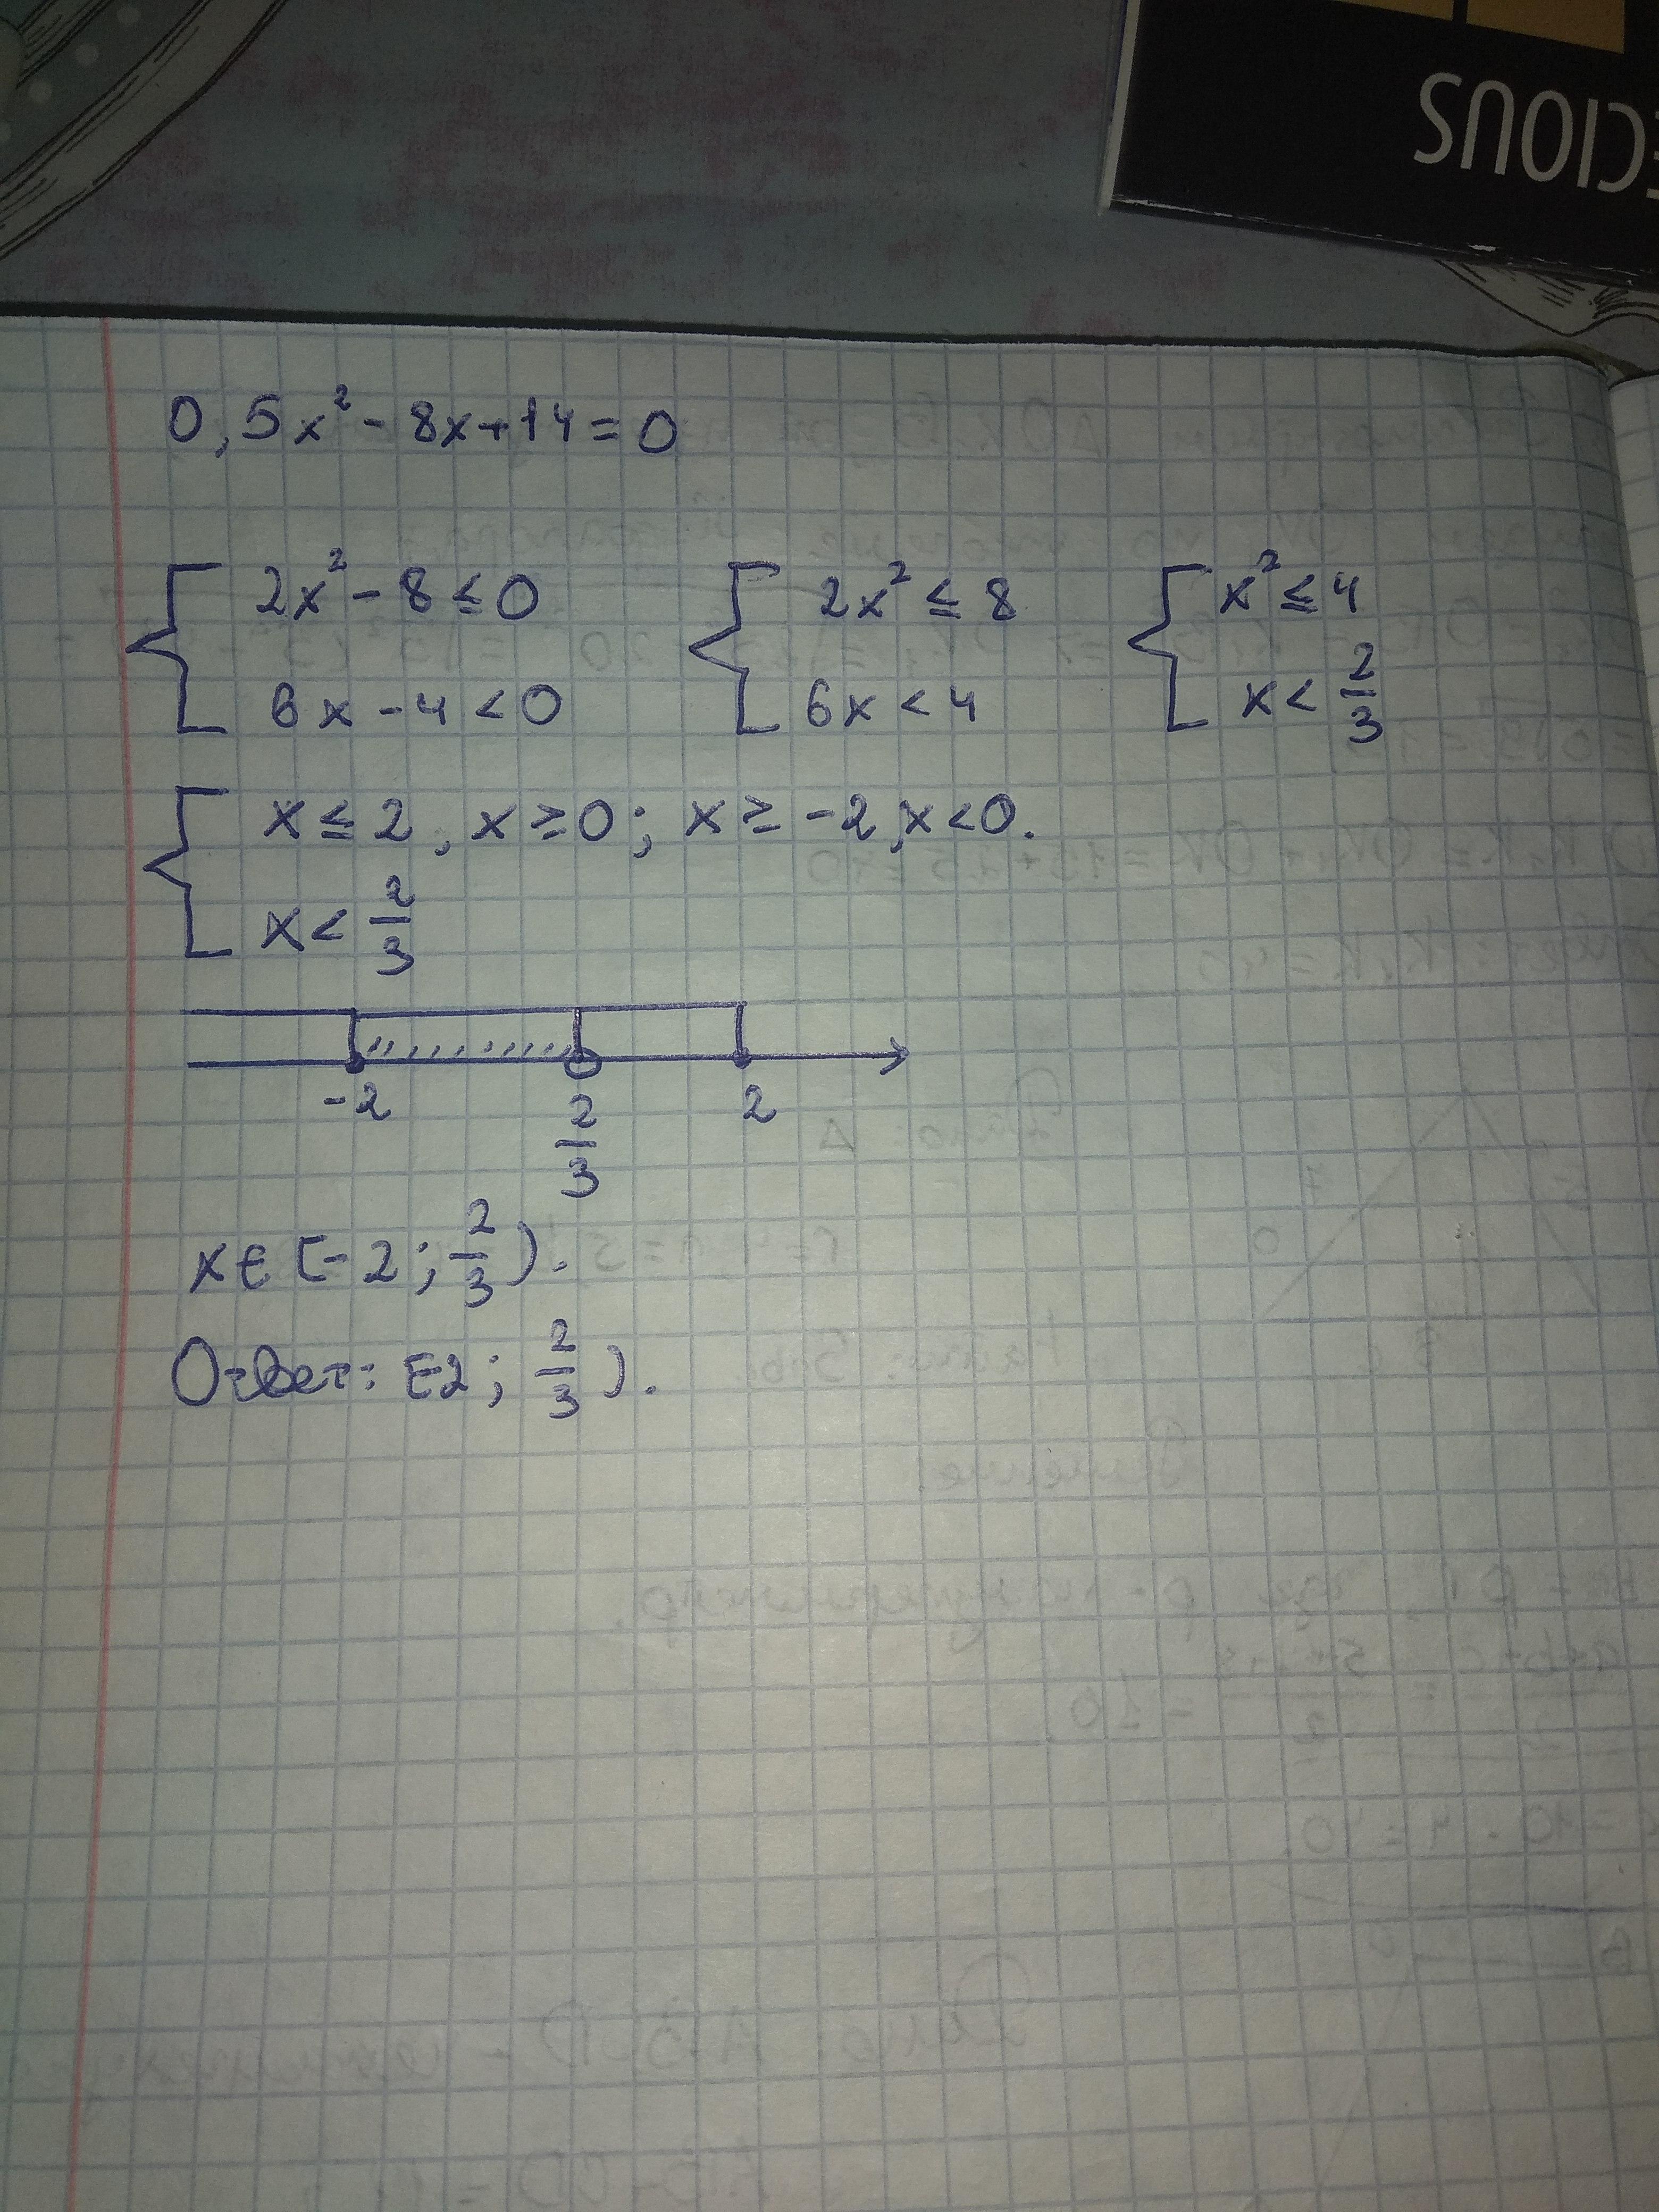 ECIOUS
0,5x² - 8x + 14 = 0
{ 2x² - 8 ≤ 0 { 2x² ≤ 8 { x² ≤ 4
6x - 4 < 0 6x < 4 x < 2/3
{ x ≤ 2, x ≥ 0; x ≥ -2, x < 0.
x < 2/3
-2 2/3 2
x ∈ [-2; 2/3).
Ответ: [-2; 2/3).